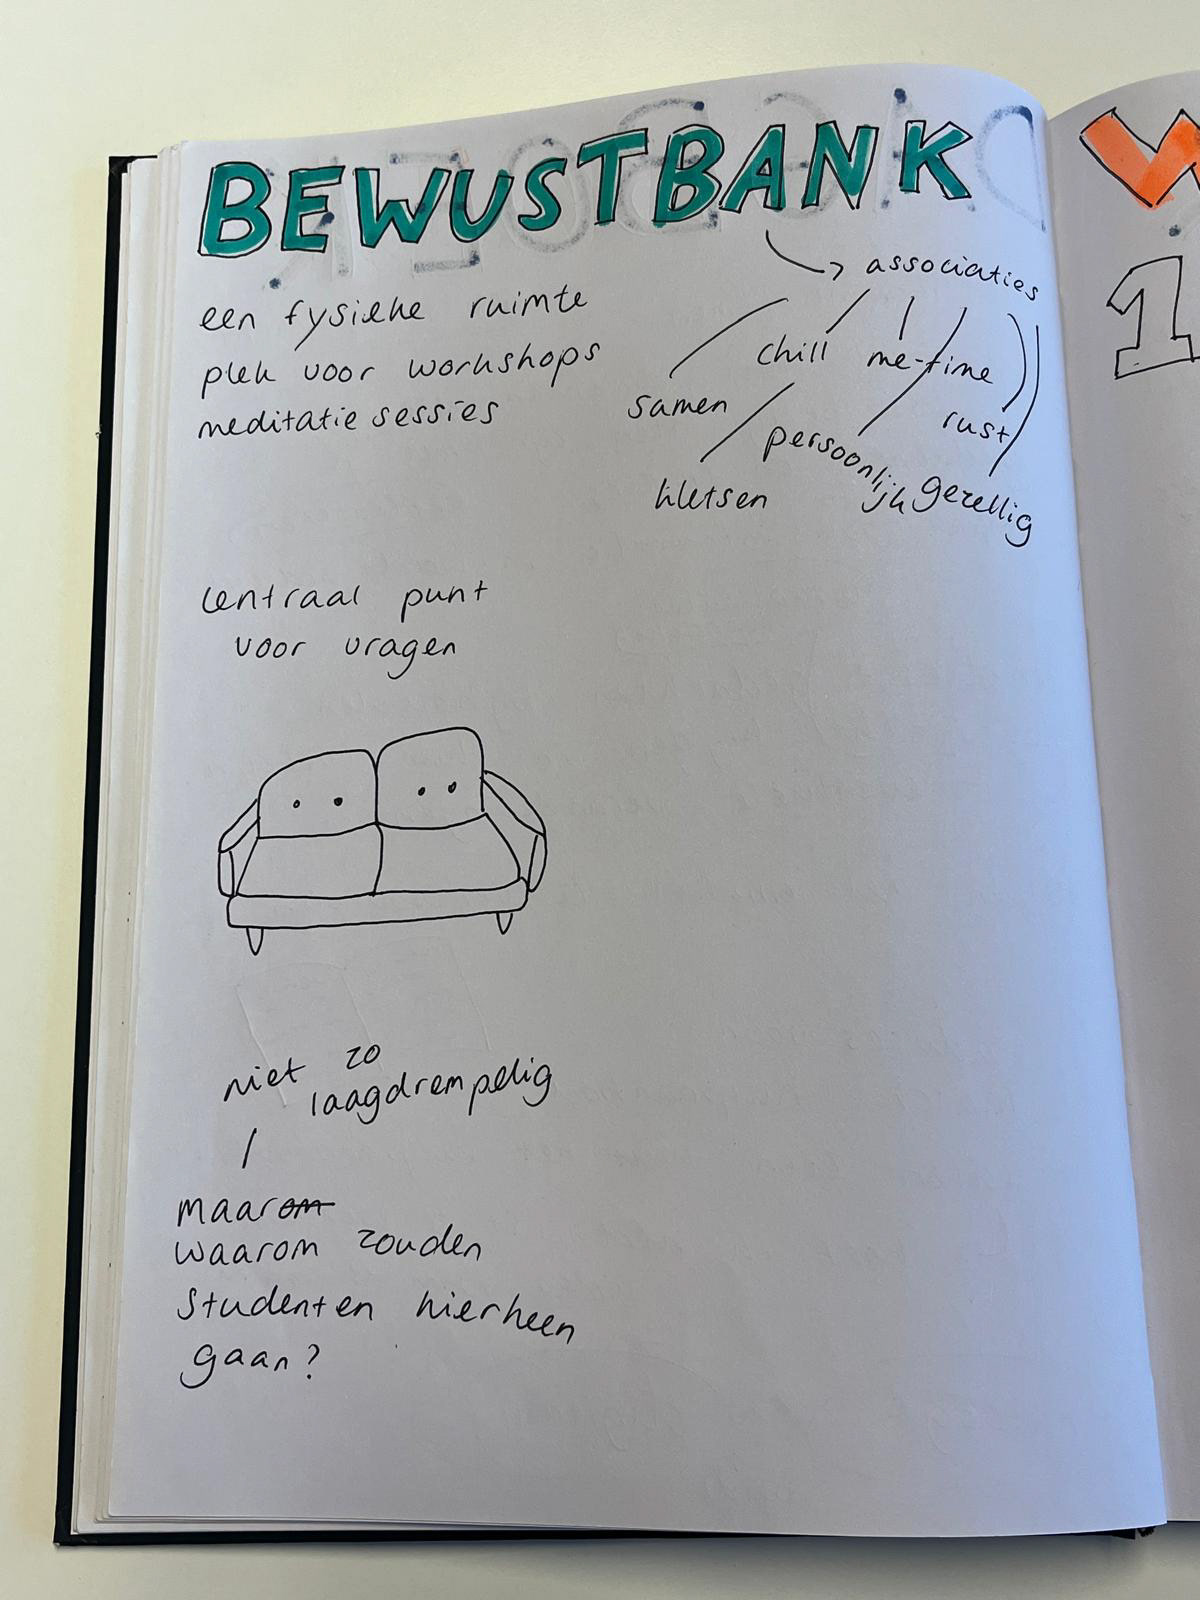 BEWUSTBANK
een fysieke ruimte
plek voor workshops
meditatie sessies
associaties
chill me-time
samen
rust
persoonlijk
kletsen
gezellig
centraal punt
voor vragen
niet zo
laagdrempelig
maarom
waarom zouden
studenten hierheen
gaan?
W
1